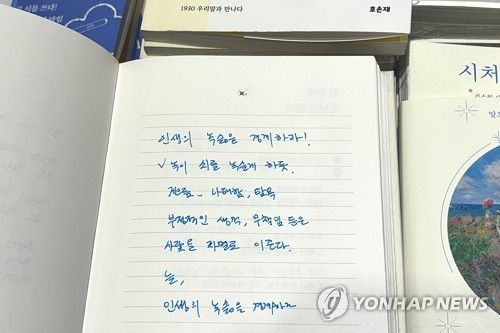 시를 쓰다!
1930 우리말과 만나다
호손재
시처
인생의 녹슮을 경계하라!
✓ 녹이 쇠를 녹슬게 하듯.
권료.. 나태함, 탐욕
부정적인 생각, 무책임 등은
사람을 자멸로 이끈다.
늘,
인생의 녹슮을 경계하자
YONHAP NEWS